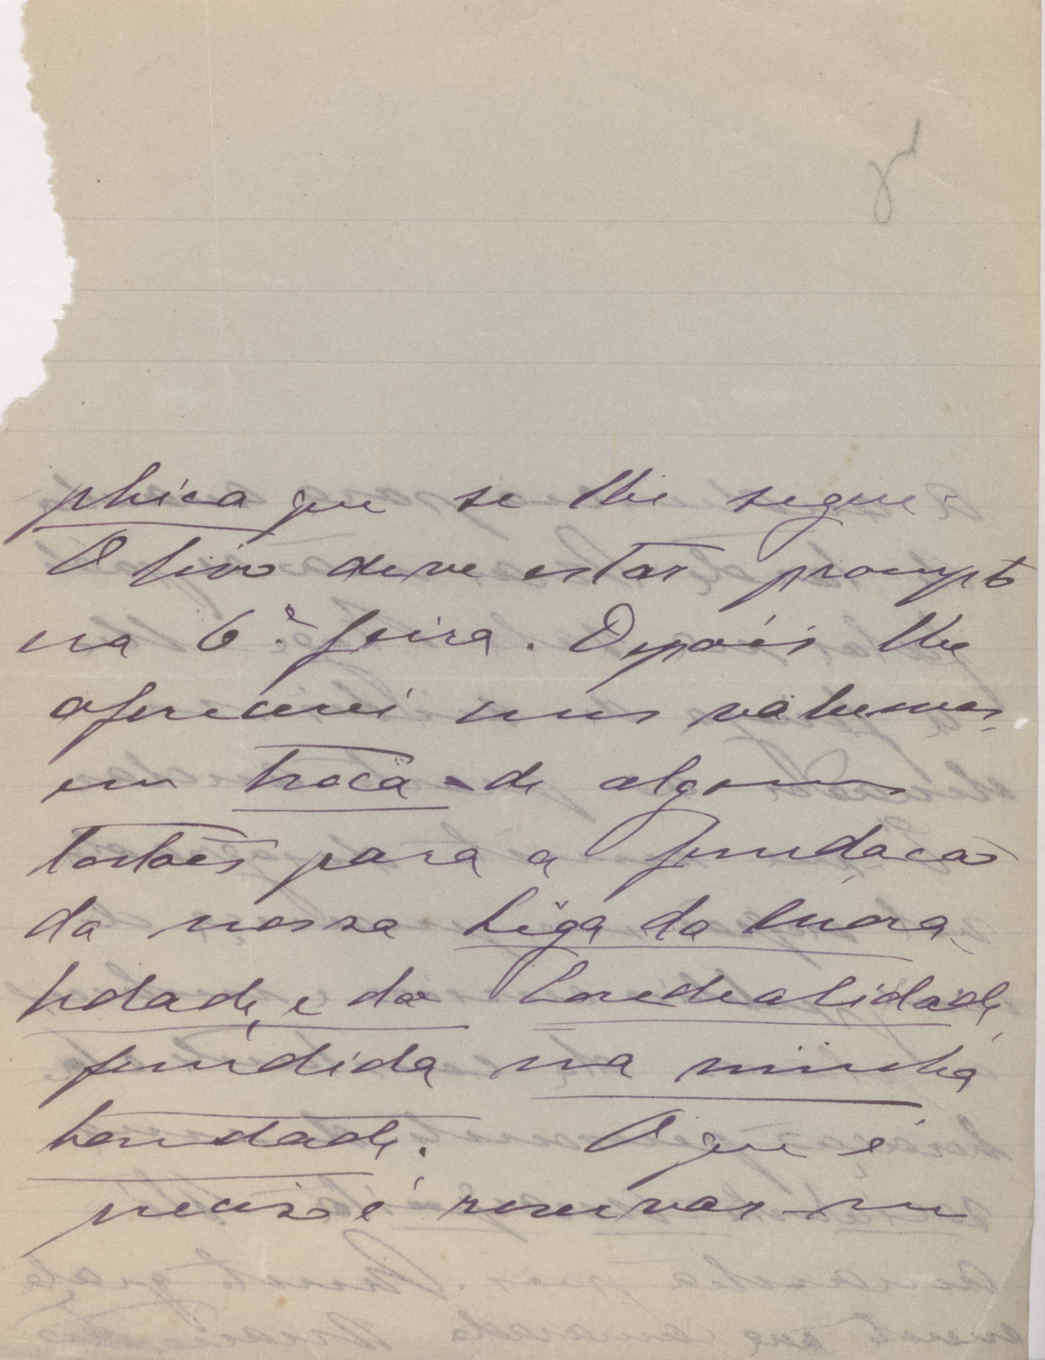 phica que se lhe segue.
O livro deve estar prompto
na 6.ª feira. Depois lhe
oferecerei uns volumes,
em troca de alguns
tostões para a fundação
da nossa Liga da Mora
lidade, e da Lordealidade,
fundida na minha
bondade. O que é
preciso é reservar-me